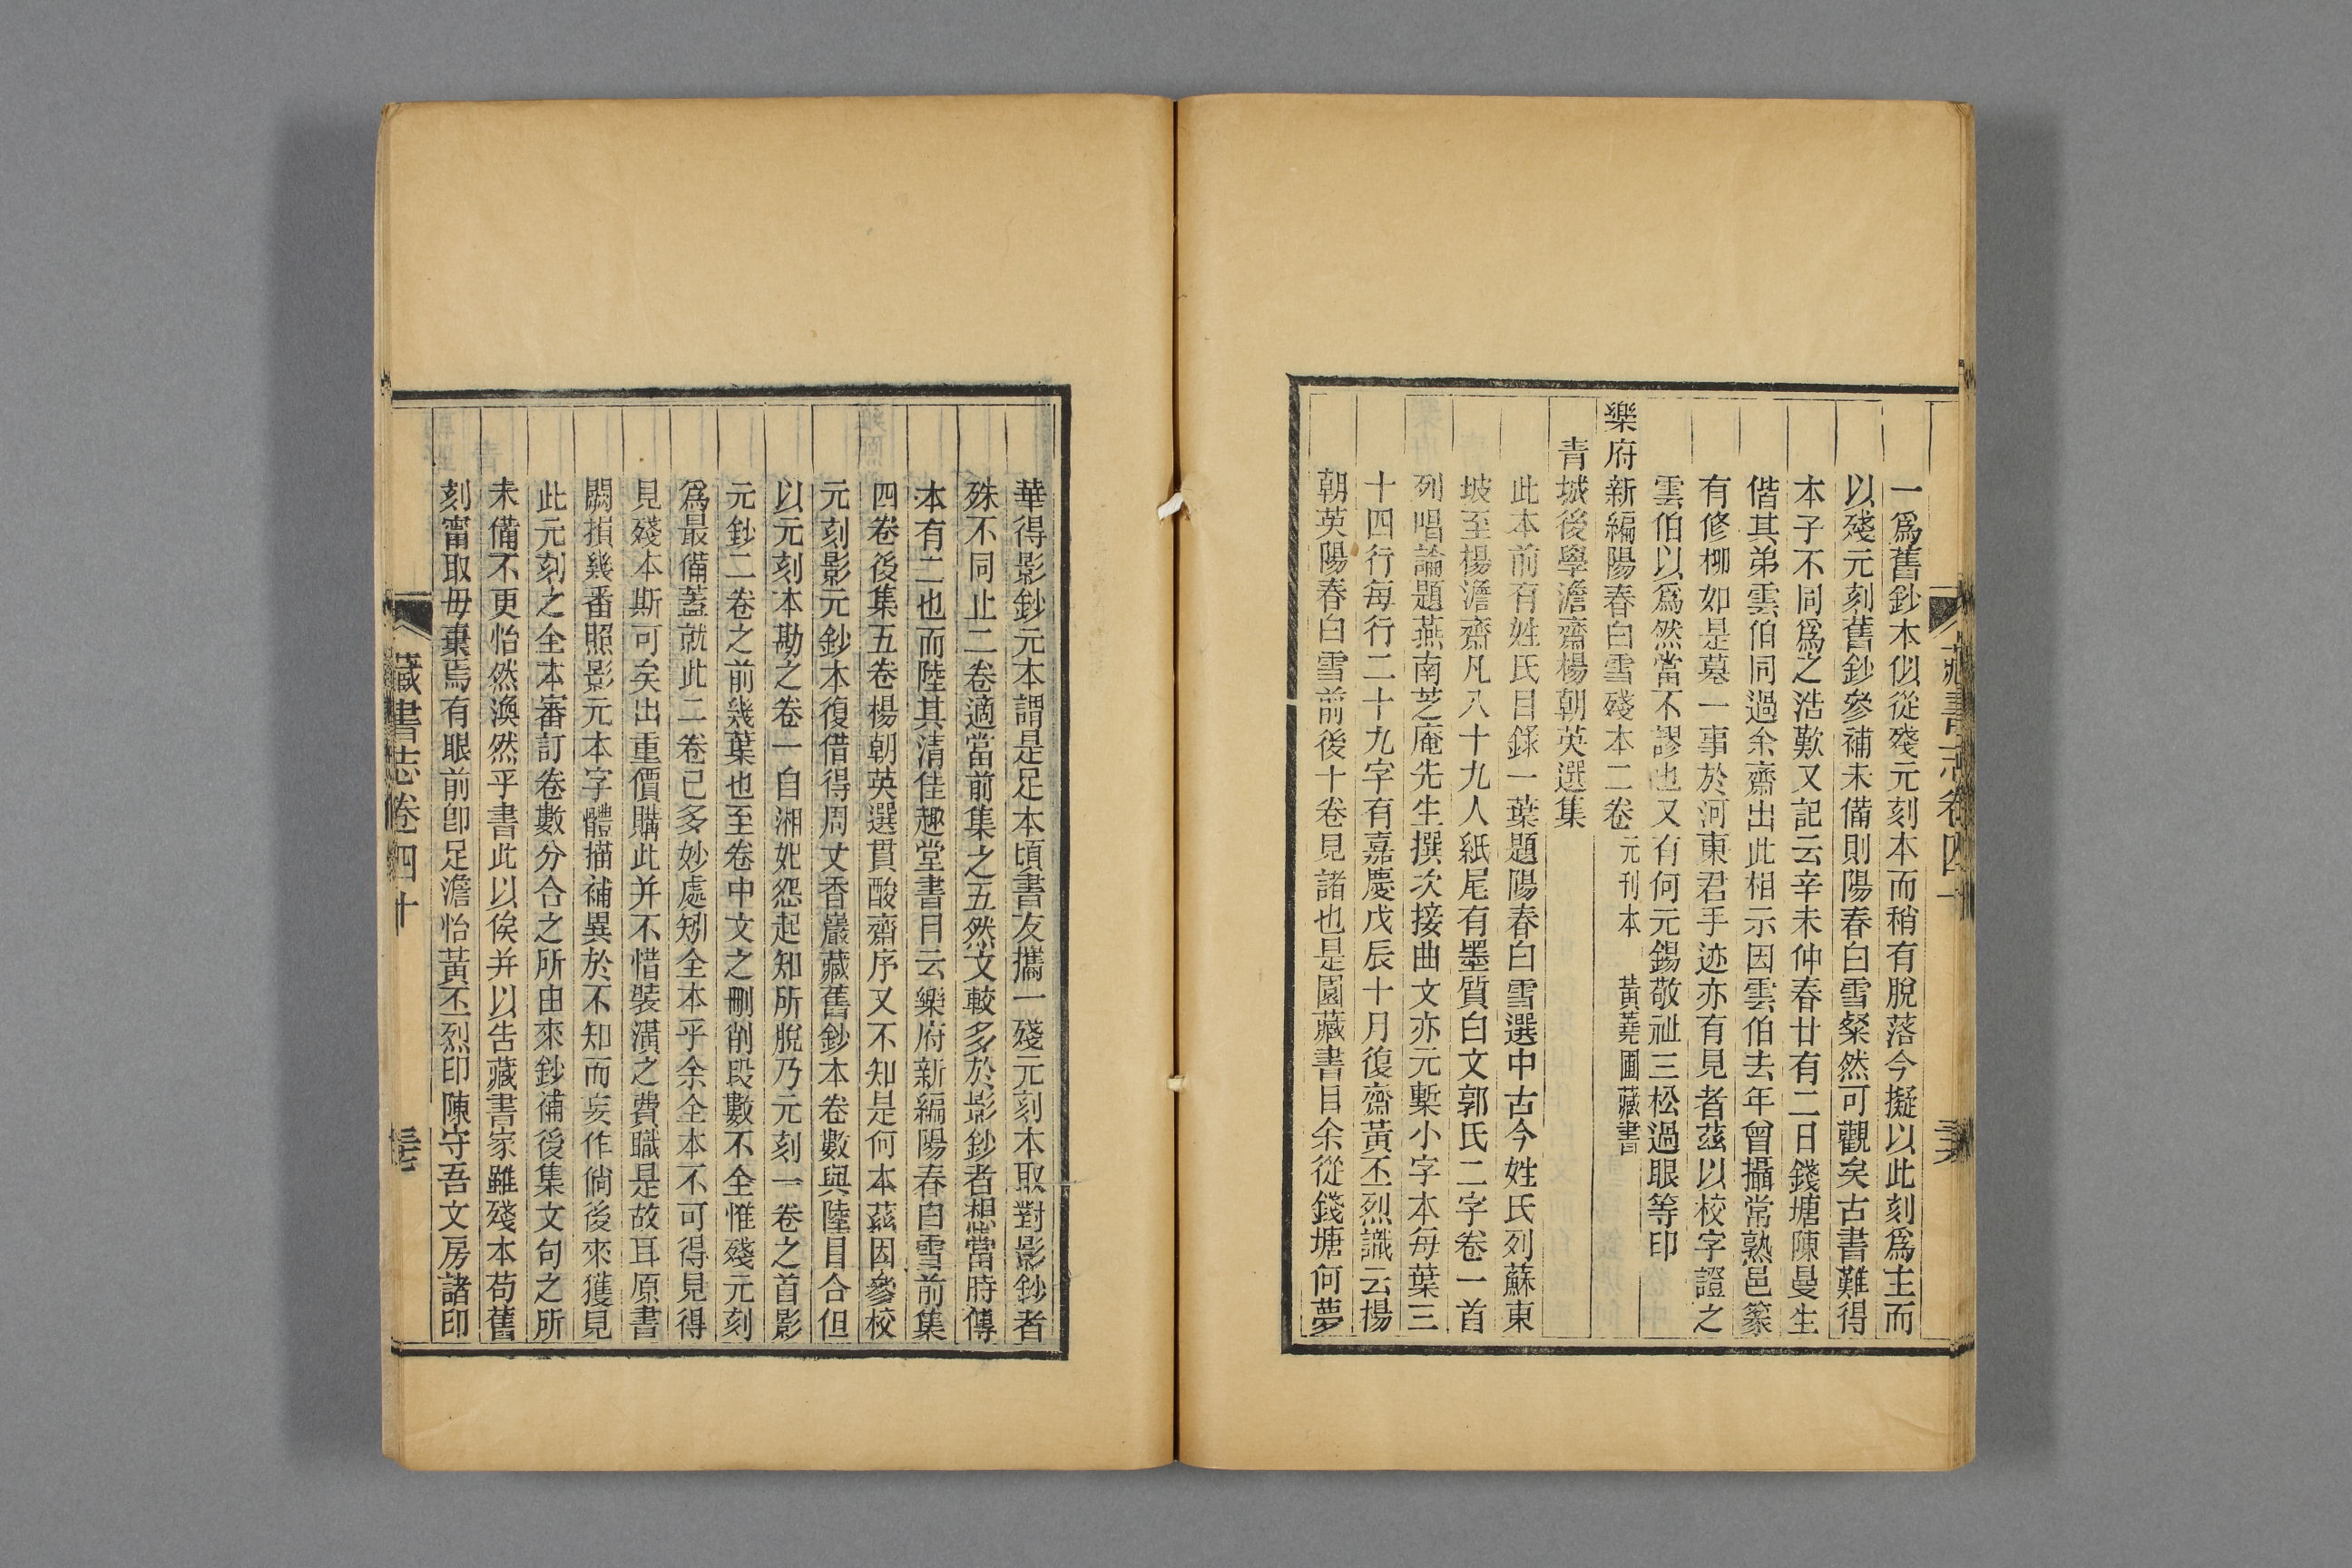 藏書志卷四十
一爲舊鈔本似從殘元刻本而稍有脫落今擬以此刻爲主而
以殘元刻舊鈔參補未備則陽春白雪粲然可觀矣古書難得
本子不同爲之浩歎又記云辛未仲春廿有二日錢塘陳曼生
偕其弟雲伯同過余齋出此相示因雲伯去年曾攝常熟邑篆
有修柳如是墓一事於河東君手迹亦有見者茲以校字證之
雲伯以爲然當不謬也又有何元錫敬祉三松過眼等印
樂府新編陽春白雪殘本二卷 元刊本 黃蕘圃藏書
青城後學澹齋楊朝英選集
此本前有姓氏目錄一葉題陽春白雪選中古今姓氏列蘇東
坡至楊澹齋凡八十九人紙尾有墨質白文郭氏二字卷一首
列唱論題燕南芝庵先生撰次接曲文亦元槧小字本每葉三
十四行每行二十九字有嘉慶戊辰十月復齋黃丕烈識云揚
朝英陽春白雪前後十卷見諸也是園藏書目余從錢塘何夢
華得影鈔元本謂是足本頃書友攜一殘元刻本取對影鈔者
殊不同止二卷適當前集之五然文較多於影鈔者想當時傳
本有二也而陸其清佳趣堂書目云樂府新編陽春白雪前集
四卷後集五卷楊朝英選貫酸齋序又不知是何本茲因參校
元刻影元鈔本復借得周丈香巖藏舊鈔本卷數與陸目合但
以元刻本勘之卷一自湘妃怨起知所脫乃元刻一卷之首影
元鈔二卷之前幾葉也至卷中文之刪削段數不全惟殘元刻
爲最備蓋就此二卷已多妙處矧全本乎余全本不可得見得
見殘本斯可矣出重價購此并不惜裝潢之費職是故耳原書
闕損幾番照影元本字體描補異於不知而妄作倘後來獲見
此元刻之全本審訂卷數分合之所由來鈔補後集文句之所
未備不更怡然渙然乎書此以俟并以告藏書家雖殘本苟舊
刻甯取毋棄焉有眼前卽足澹怡黃丕烈印陳守吾文房諸印
藏書志卷四十